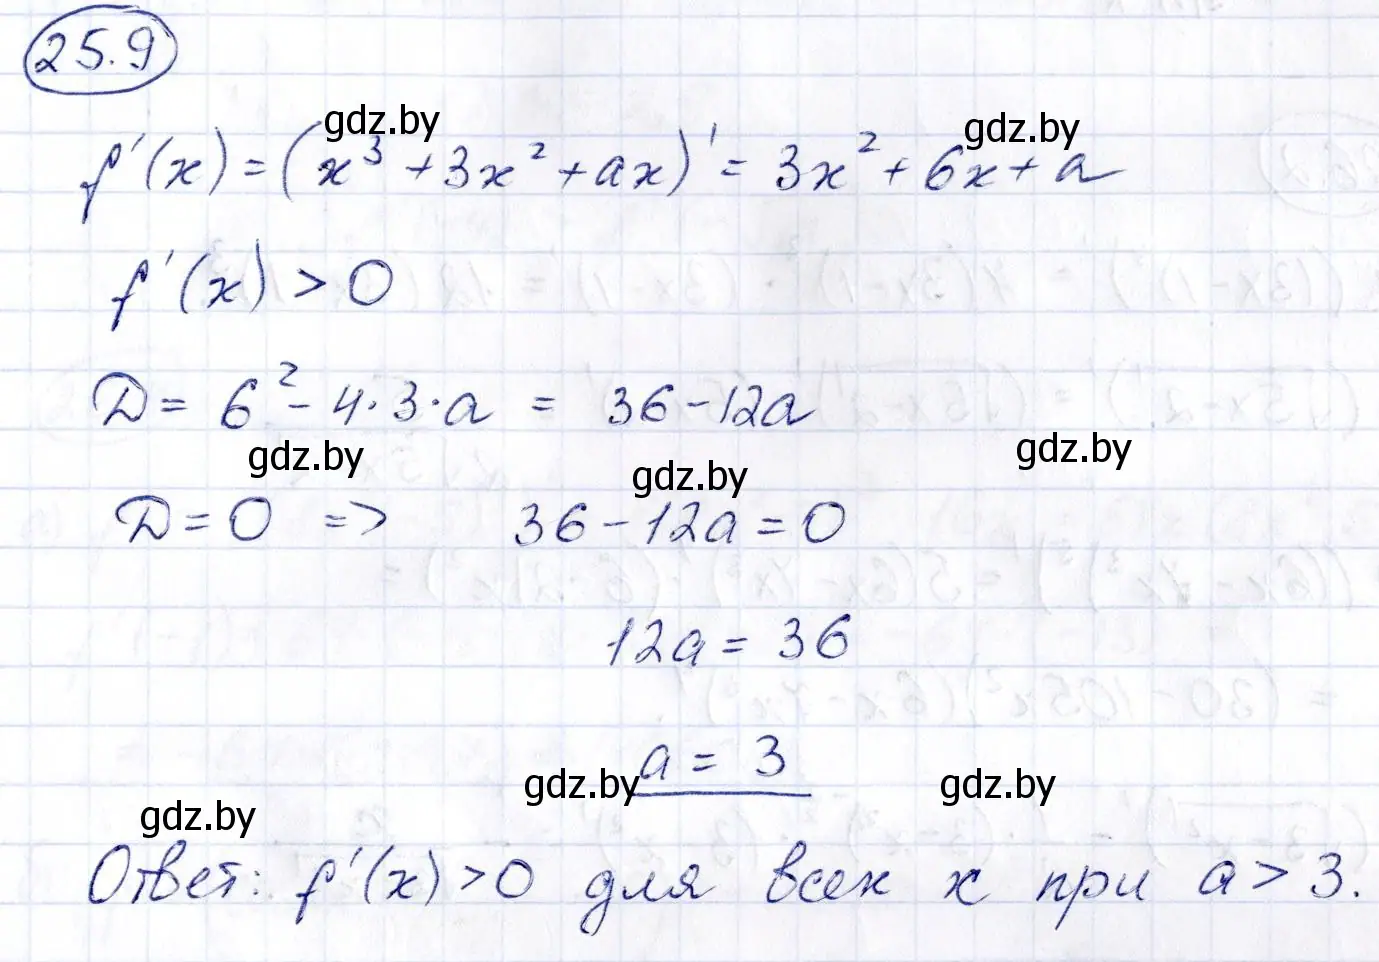 25.9
gdz.by gdz.by
f'(x) = (x³ + 3x² + ax)' = 3x² + 6x + a
f'(x) > 0
D = 6² - 4·3·a = 36 - 12a
gdz.by gdz.by gdz.by
D = 0 => 36 - 12a = 0
12a = 36
a = 3
gdz.by gdz.by gdz.by
Ответ: f'(x) > 0 для всех x при a > 3.